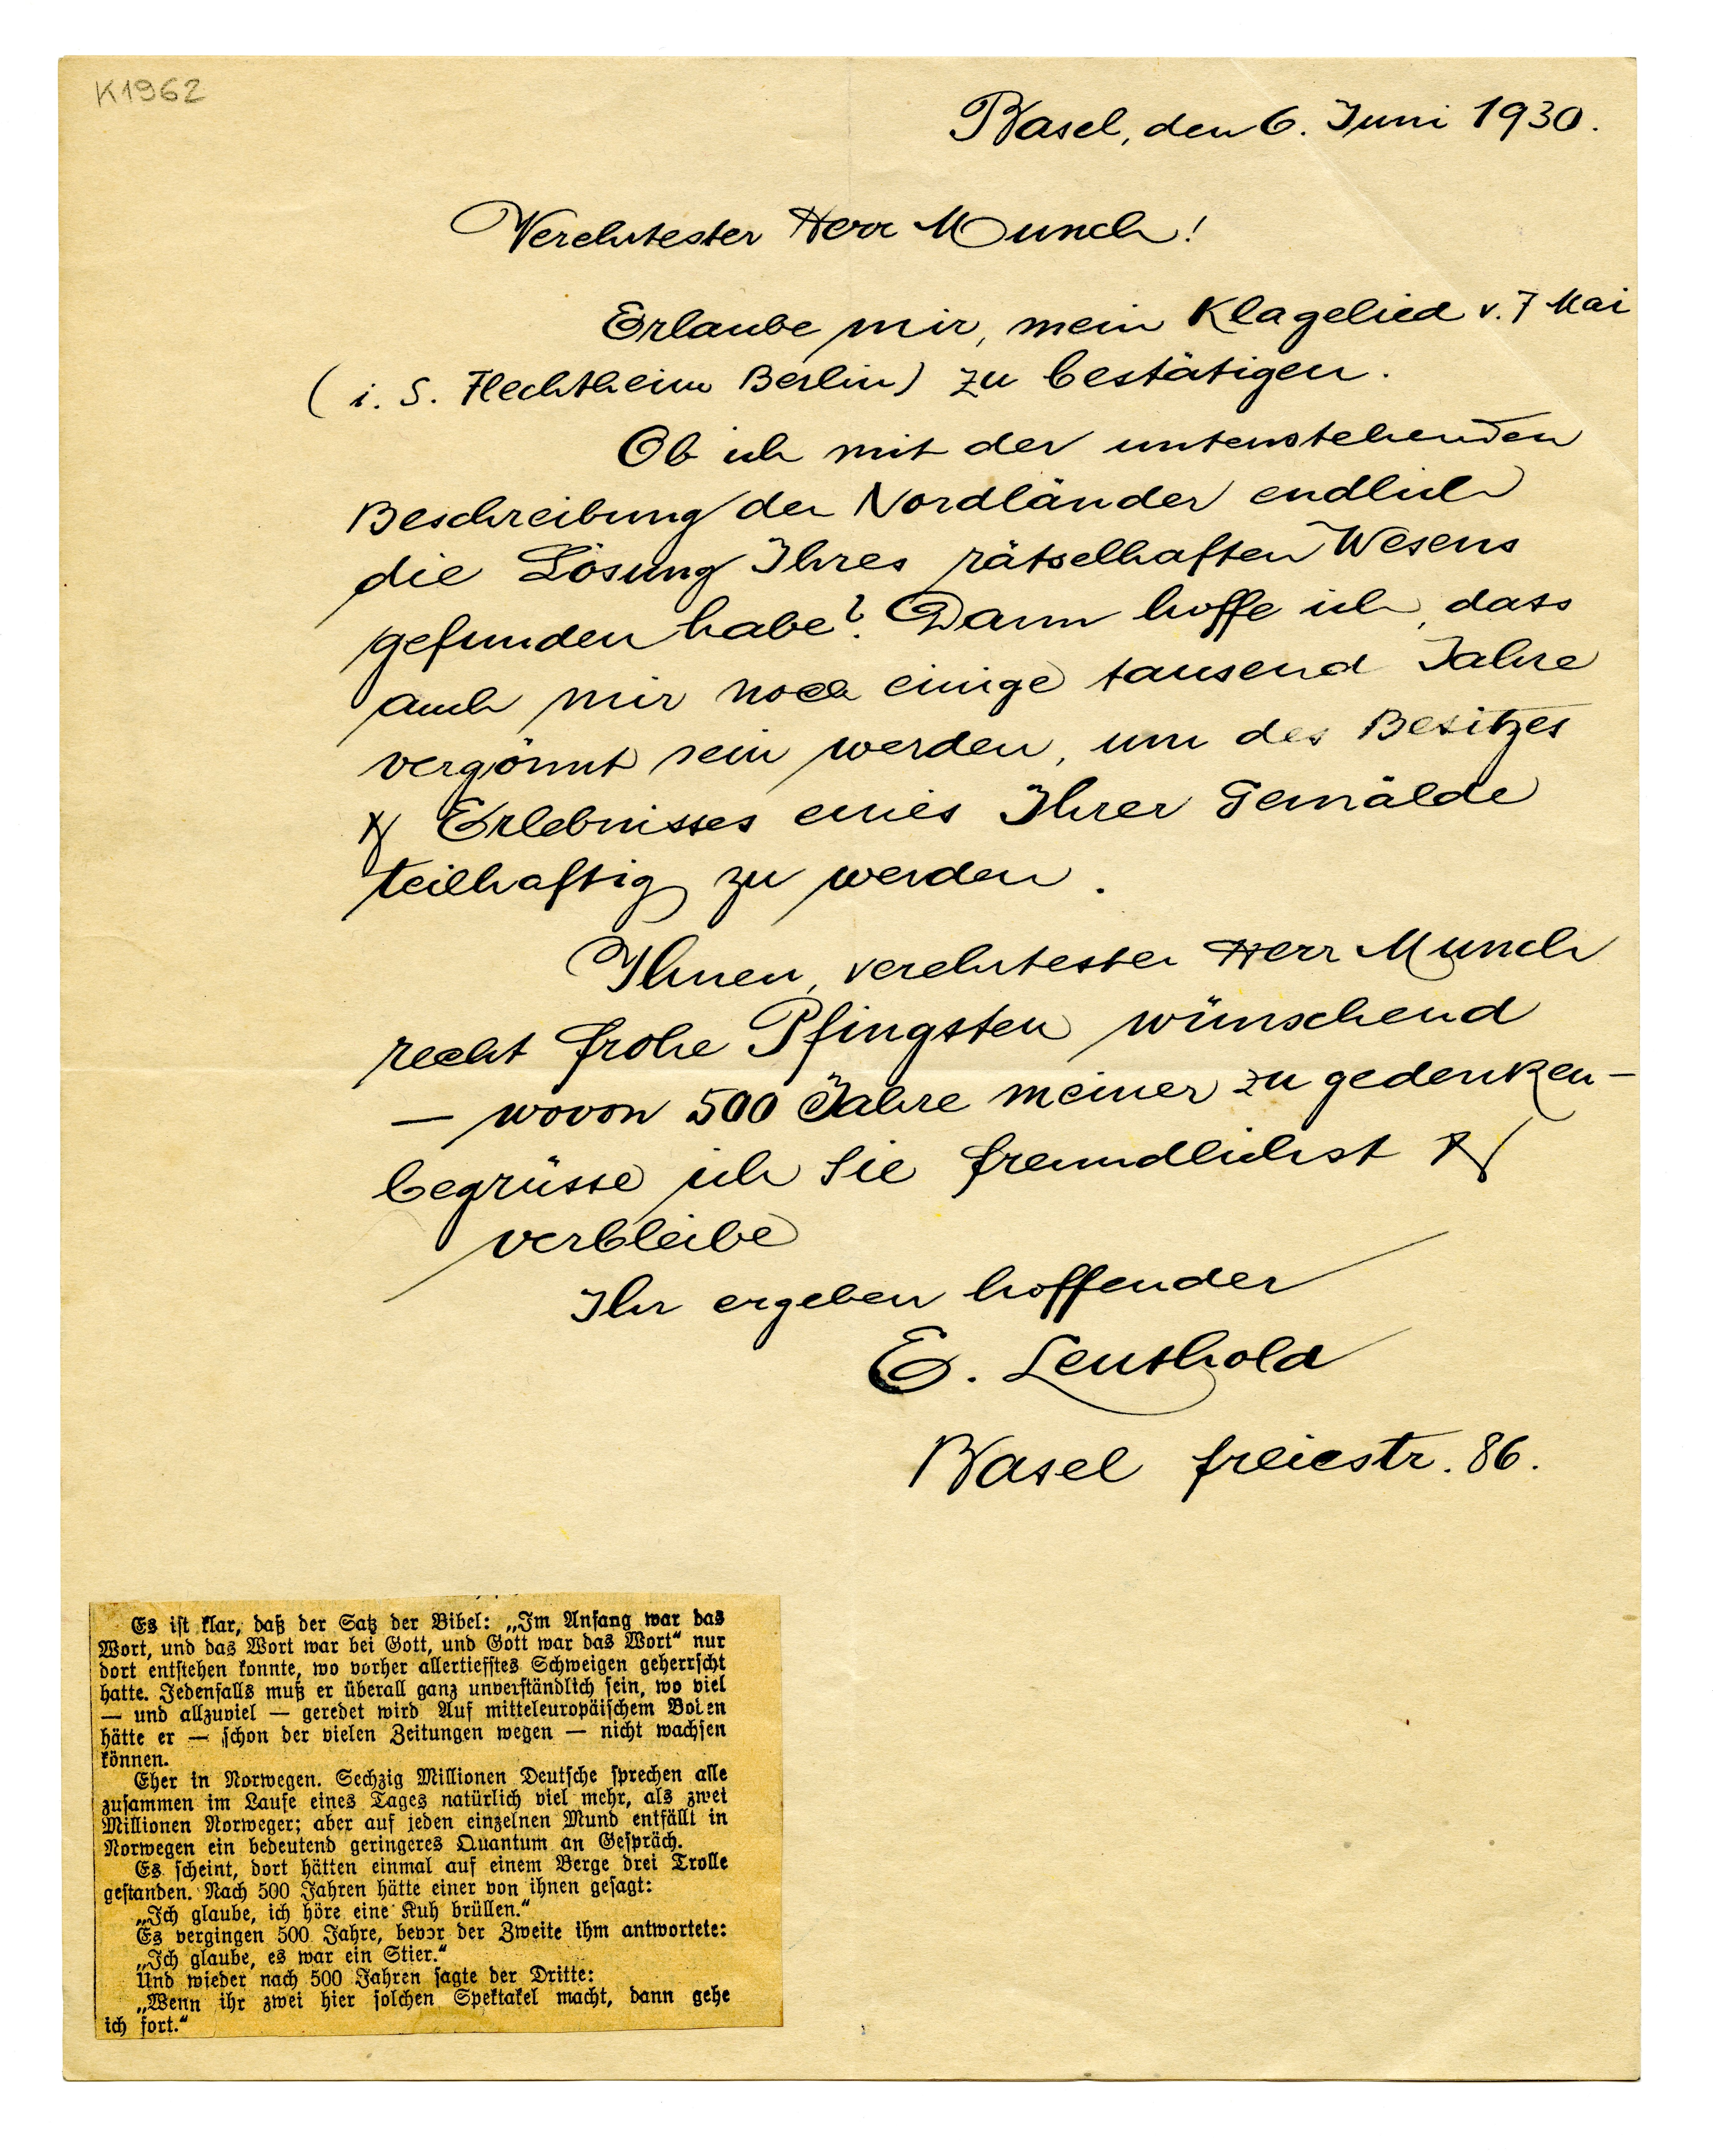 K1962
Basel, den 6. Juni 1930.
Verehrtester Herr Munch!
Erlaube mir, mein Klagelied v. 7 Mai
( i. S. Flechtheim Berlin) zu bestätigen.
Ob ich mit der untenstehenden
Beschreibung der Nordländer endlich
die Lösung Ihres rätselhaften Wesens
gefunden habe? Dann hoffe ich, dass
auch mir noch einige tausend Jahre
vergönnt sein werden, um des Besitzes
& Erlebnisses eines Ihrer Gemälde
teilhaftig zu werden.
Ihnen, verehrtester Herr Munch
recht frohe Pfingsten wünschend
— wovon 500 Jahre meiner zu gedenken —
begrüsse ich Sie freundlichst &
verbleibe
Ihr ergeben hoffender
E. Leuthold
Basel freiestr. 86.
Es ist klar, daß der Satz der Bibel: „Im Anfang war das
Wort, und das Wort war bei Gott, und Gott war das Wort“ nur
dort entstehen konnte, wo vorher allertiefstes Schweigen geherrscht
hatte. Jedenfalls muß er überall ganz unverständlich sein, wo viel
— und allzuviel — geredet wird Auf mitteleuropäischem Boden
hätte er — schon der vielen Zeitungen wegen — nicht wachsen
können.
Eher in Norwegen. Sechzig Millionen Deutsche sprechen alle
zusammen im Laufe eines Tages natürlich viel mehr, als zwei
Millionen Norweger; aber auf jeden einzelnen Mund entfällt in
Norwegen ein bedeutend geringeres Quantum an Gespräch.
Es scheint, dort hätten einmal auf einem Berge drei Trolle
gestanden. Nach 500 Jahren hätte einer von ihnen gesagt:
„Ich glaube, ich höre eine Kuh brüllen.“
Es vergingen 500 Jahre, bevor der Zweite ihm antwortete:
„Ich glaube, es war ein Stier.“
Und wieder nach 500 Jahren sagte der Dritte:
„Wenn ihr zwei hier solchen Spektakel macht, dann gehe
ich fort.“